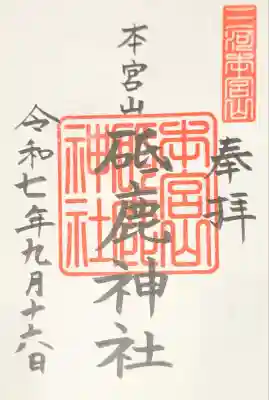 三河本宮山
奉拝
本宮山
砥鹿神社
本宮山砥鹿神社
令和七年九月十六日